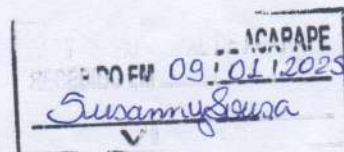 ACARAPE
DO EM 09/01/2025
Susanny Sousa